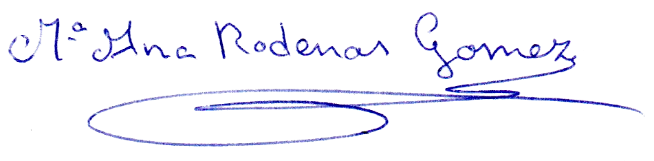 Mª Ana Rodenas Gomez